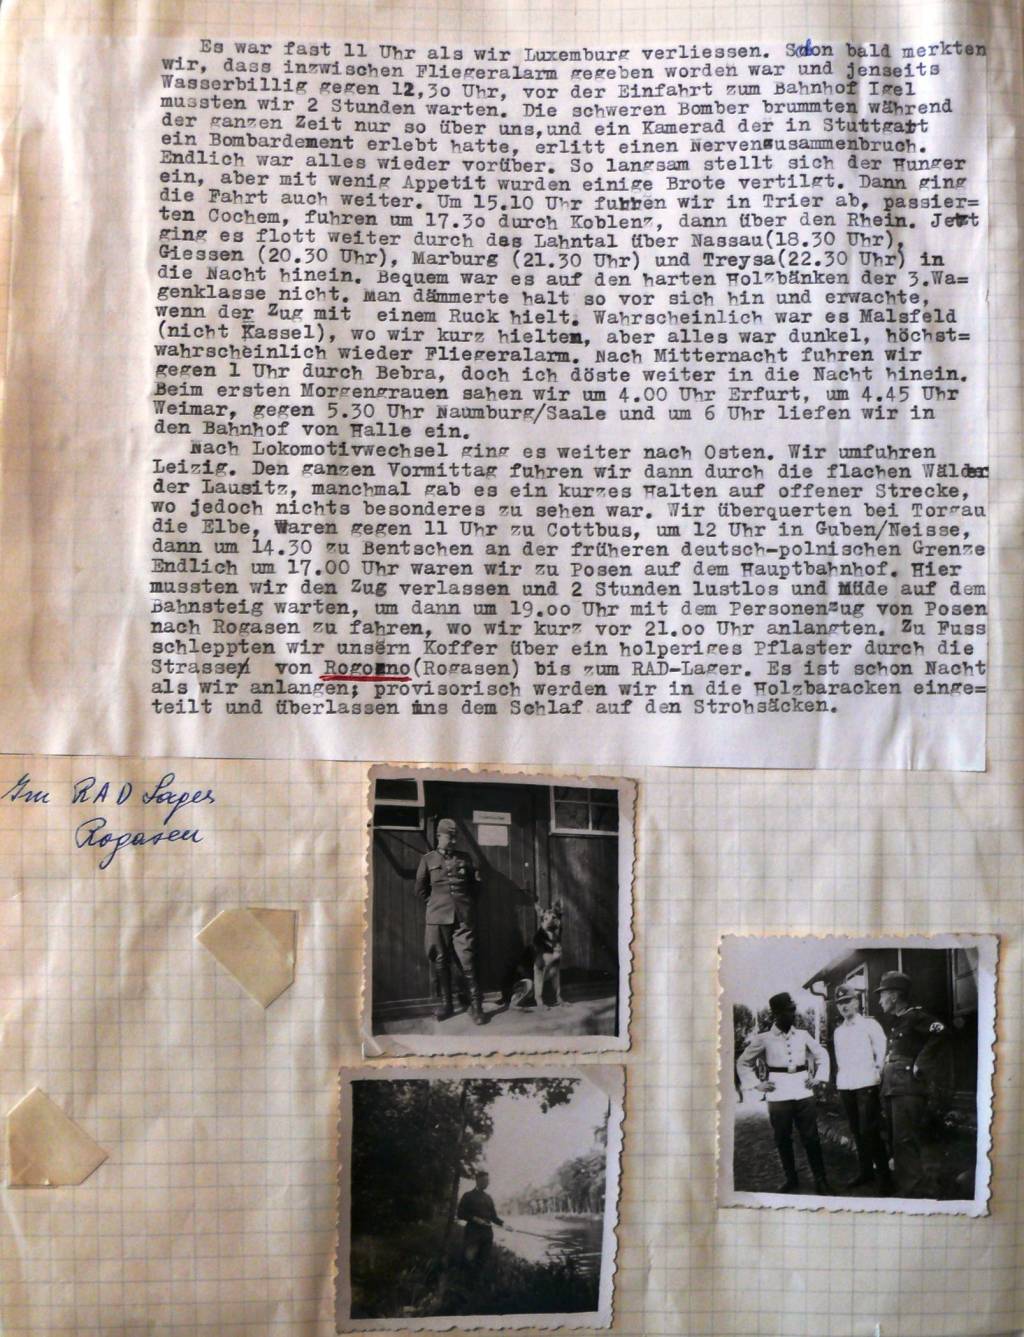 Es war fast 11 Uhr als wir Luxemburg verliessen. Schon bald merkten
wir, dass inzwischen Fliegeralarm gegeben worden war und jenseits
Wasserbillig gegen 12,30 Uhr, vor der Einfahrt zum Bahnhof Igel
mussten wir 2 Stunden warten. Die schweren Bomber brummten während
der ganzen Zeit nur so über uns,und ein Kamerad der in Stuttgart
ein Bombardement erlebt hatte, erlitt einen Nervenzusammenbruch.
Endlich war alles wieder vorüber. So langsam stellt sich der Hunger
ein, aber mit wenig Appetit wurden einige Brote vertilgt. Dann ging
die Fahrt auch weiter. Um 15.10 Uhr fuhren wir in Trier ab, passier=
ten Cochem, fuhren um 17.30 durch Koblenz, dann über den Rhein. Jetzt
ging es flott weiter durch das Lahntal über Nassau(18.30 Uhr),
Giessen (20.30 Uhr), Marburg (21.30 Uhr) und Treysa(22.30 Uhr) in
die Nacht hinein. Bequem war es auf den harten Holzbänken der 3.Wa=
genklasse nicht. Man dämmerte halt so vor sich hin und erwachte,
wenn der Zug mit einem Ruck hielt. Wahrscheinlich war es Malsfeld
(nicht Kassel), wo wir kurz hielten, aber alles war dunkel, höchst=
wahrscheinlich wieder Fliegeralarm. Nach Mitternacht fuhren wir
gegen 1 Uhr durch Bebra, doch ich döste weiter in die Nacht hinein.
Beim ersten Morgengrauen sahen wir um 4.00 Uhr Erfurt, um 4.45 Uhr
Weimar, gegen 5.30 Uhr Naumburg/Saale und um 6 Uhr liefen wir in
den Bahnhof von Halle ein.
Nach Lokomotivwechsel ging es weiter nach Osten. Wir umfuhren
Leizig. Den ganzen Vormittag fuhren wir dann durch die flachen Wälder
der Lausitz, manchmal gab es ein kurzes Halten auf offener Strecke,
wo jedoch nichts besonderes zu sehen war. Wir überquerten bei Torgau
die Elbe, Waren gegen 11 Uhr zu Cottbus, um 12 Uhr in Guben/Neisse,
dann um 14.30 zu Bentschen an der früheren deutsch-polnischen Grenze
Endlich um 17.00 Uhr waren wir zu Posen auf dem Hauptbahnhof. Hier
mussten wir den Zug verlassen und 2 Stunden lustlos und Müde auf dem
Bahnsteig warten, um dann um 19.00 Uhr mit dem Personenzug von Posen
nach Rogasen zu fahren, wo wir kurz vor 21.00 Uhr anlangten. Zu Fuss
schleppten wir unsern Koffer über ein holperiges Pflaster durch die
Strassen von Rogozno(Rogasen) bis zum RAD-Lager. Es ist schon Nacht
als wir anlangen; provisorisch werden wir in die Holzbaracken einge=
teilt und überlassen uns dem Schlaf auf den Strohsäcken.
Im RAD Lager
Rogasen